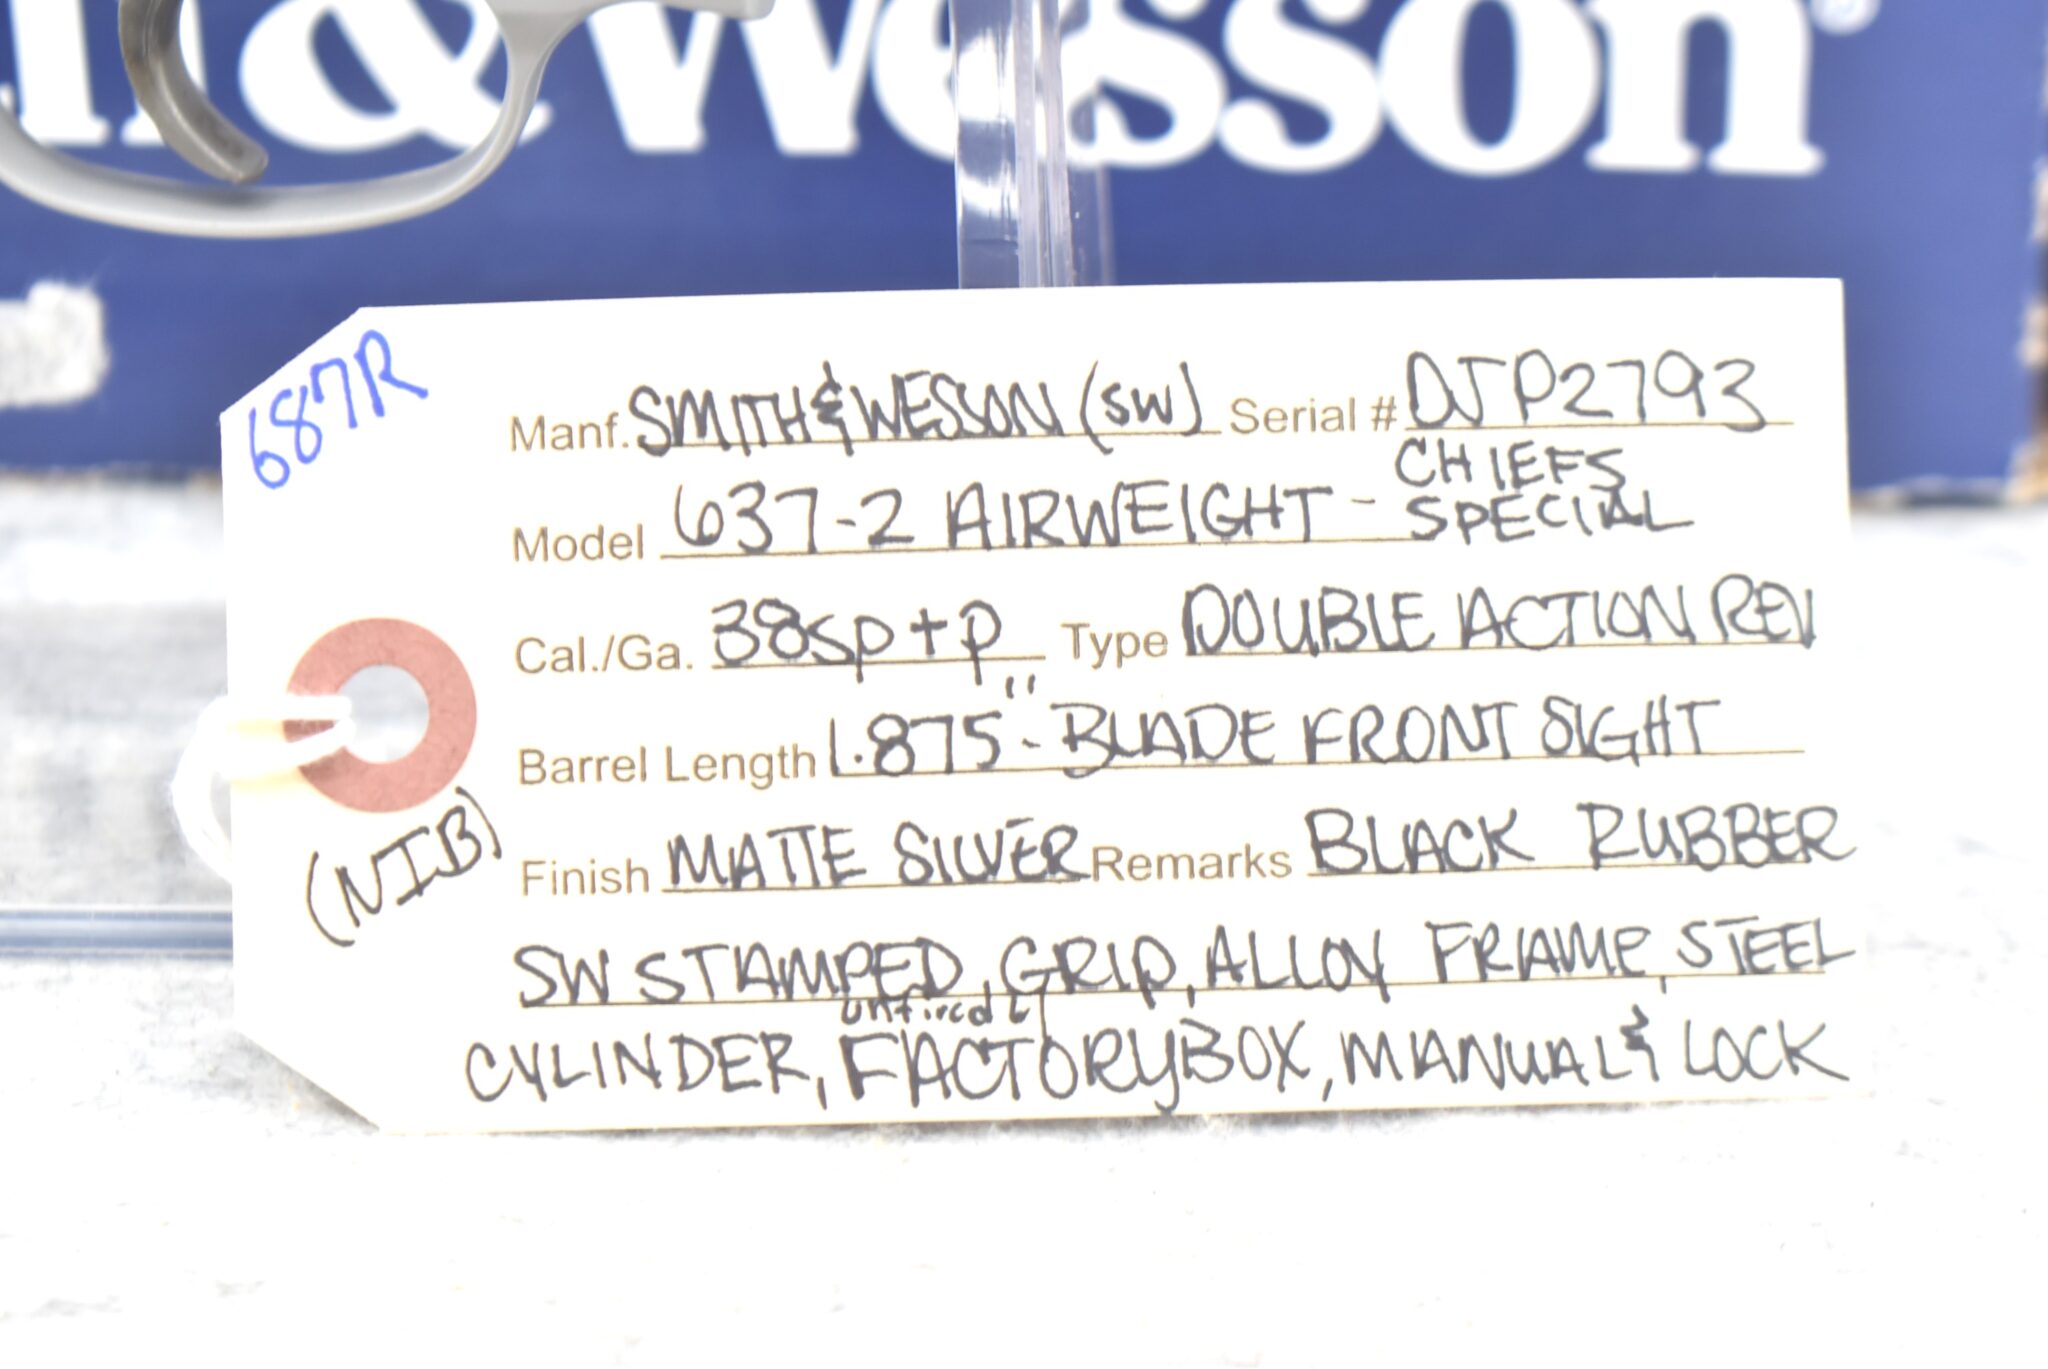 & Wesson®
687R
Manf. SMITH & WESSON (SW) Serial # DJP2793
Model 637-2 AIRWEIGHT - CHIEFS SPECIAL
Cal./Ga. 38sp+p Type DOUBLE ACTION REV
Barrel Length 1.875" - BLADE FRONT SIGHT
(NIB)
Finish MATTE SILVER Remarks BLACK RUBBER
SW STAMPED, GRIP, ALLOY FRAME, STEEL
unfired
CYLINDER, FACTORY BOX, MANUAL & LOCK